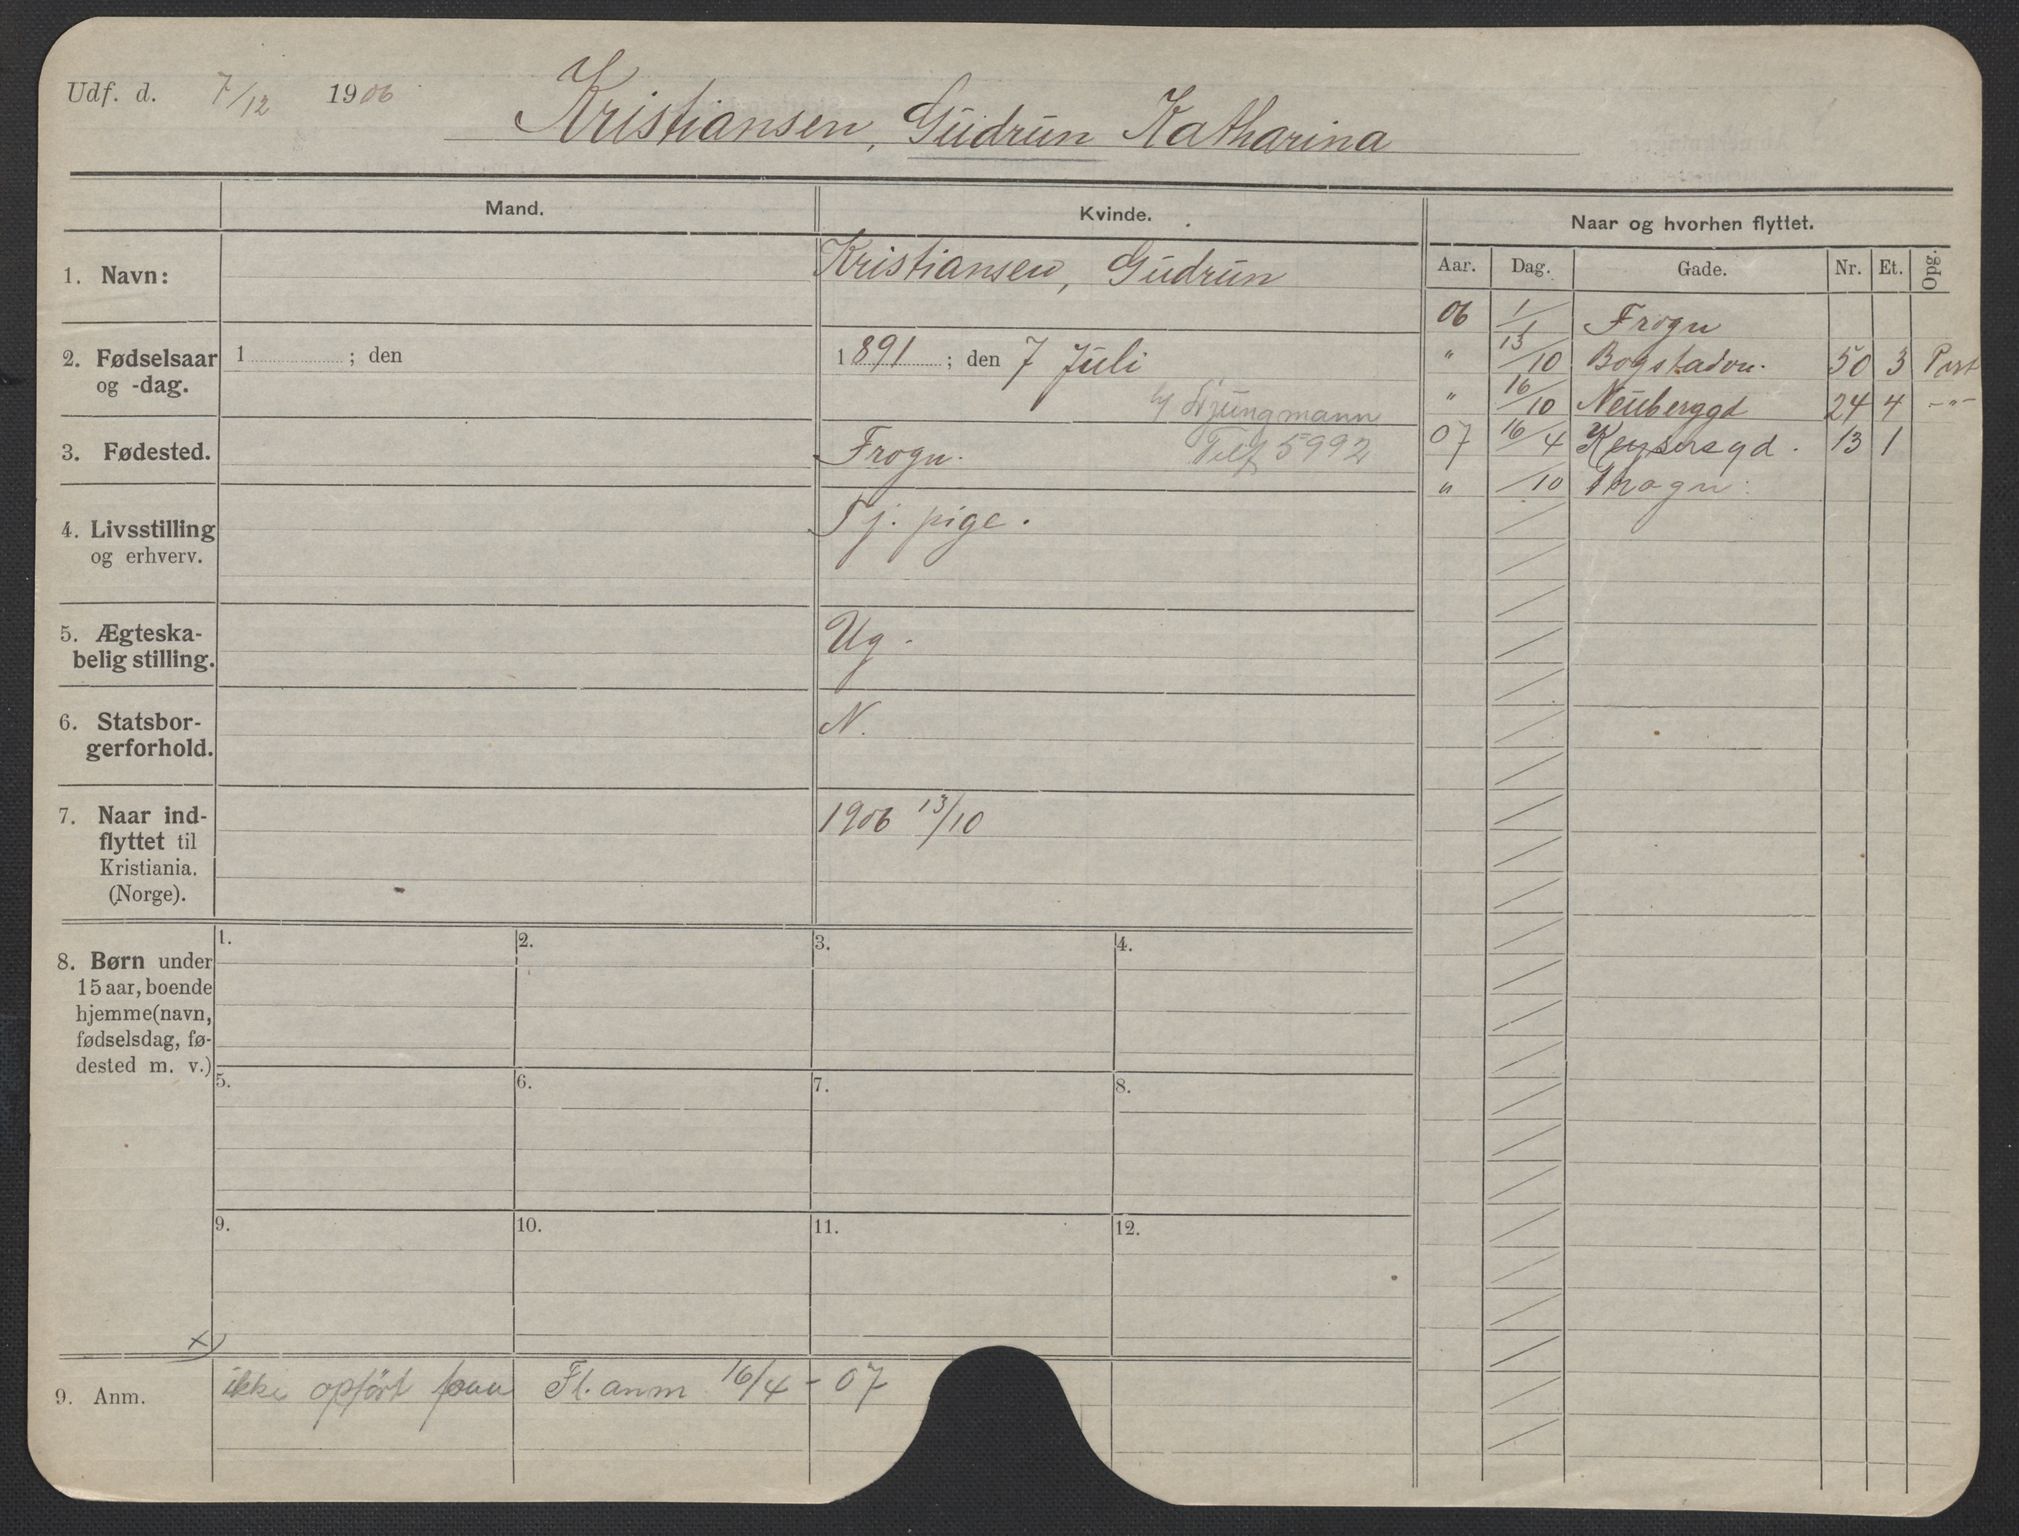 Udf. d. 7/12 1906
Kristiansen, Gudrun Katharina
Mand.
Kvinde.
Naar og hvorhen flyttet.
Aar. Dag. Gade. Nr. Et. Opg.
1. Navn:
Kristiansen, Gudrun
06 1/1 Frogn
" 13/10 Bogstadvn. 50 3 Port
" 16/10 Neuberggd 24 4 -"-
07 16/4 Keysersgd. 13 1
" /10 Frogn.
2. Fødselsaar
og -dag.
1 ; den
1891 ; den 7 Juli
h/ Ljungmann
3. Fødested.
Frogn.
Telf 5992
4. Livsstilling
og erhverv.
Tj. pige.
5. Ægteska-
belig stilling.
Ug.
6. Statsbor-
gerforhold.
N.
7. Naar ind-
flyttet til
Kristiania.
(Norge).
1906 13/10
8. Børn under
15 aar, boende
hjemme (navn,
fødselsdag, fø-
dested m. v.)
1. 2. 3. 4.
5. 6. 7. 8.
9. 10. 11. 12.
x)
9. Anm.
ikke opført paa Fl. anm 16/4 - 07